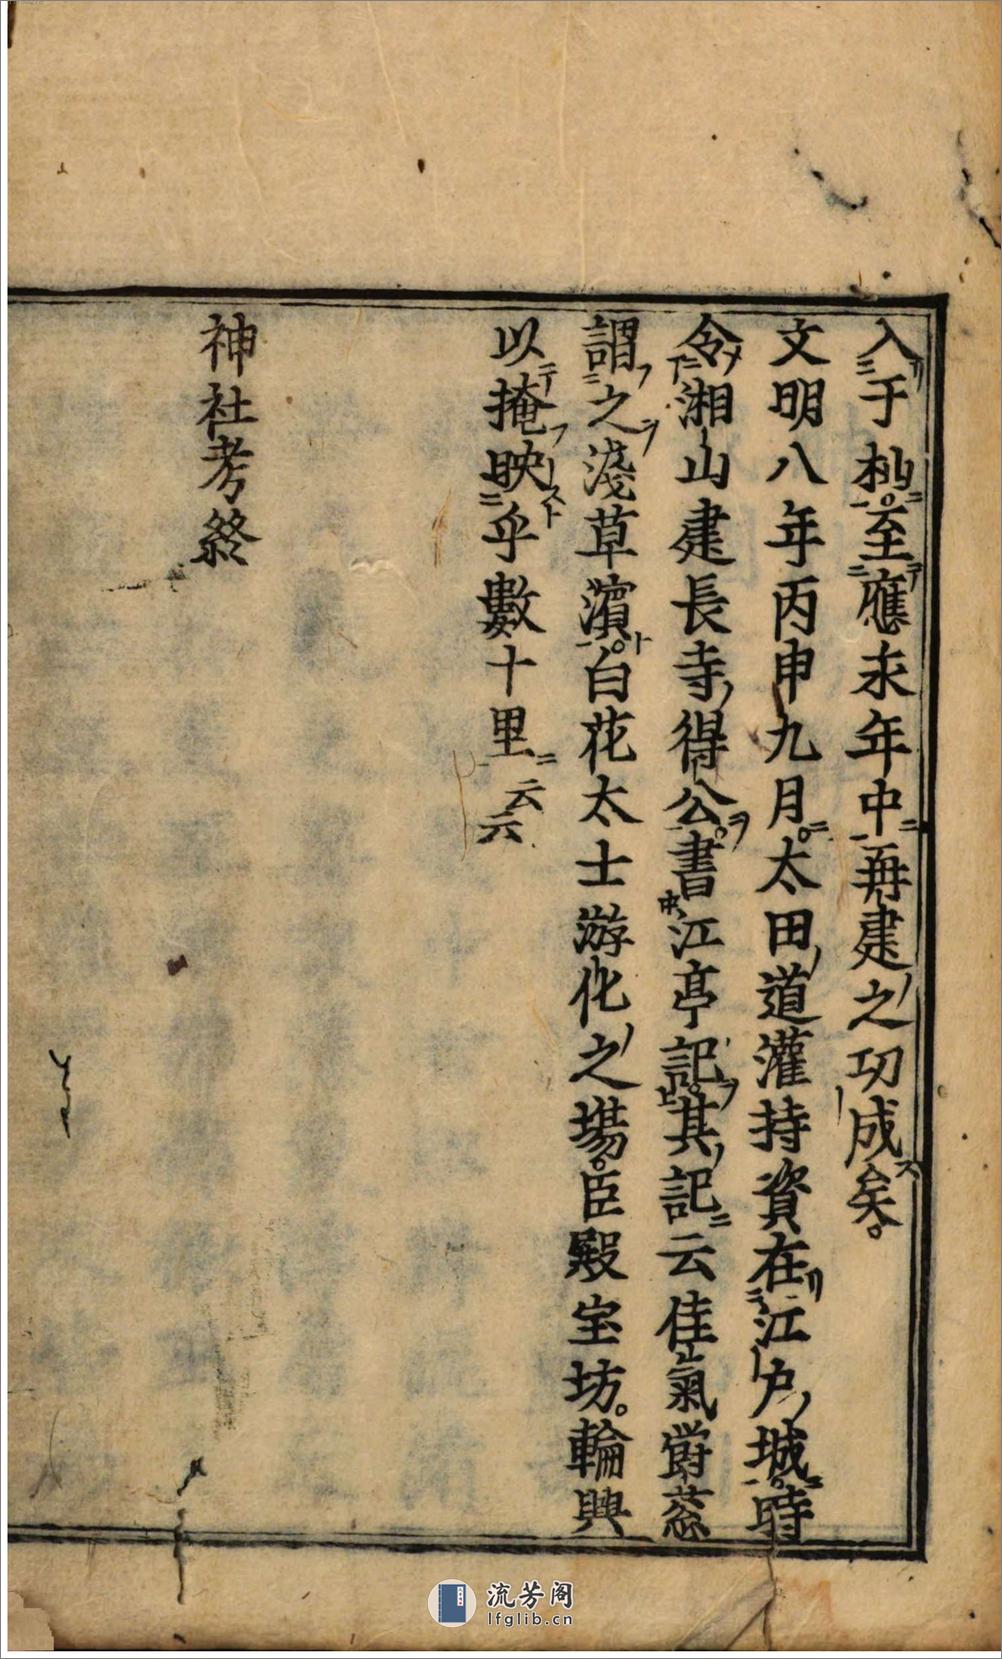 入于杣至應永年中再建之功成矣
文明八年丙申九月太田道灌持資在江戸城時
令湘山建長寺得公書江亭記其記云佳氣欝葱
謂之淺草濱白花大士游化之場巨殿宝坊輪奐
以掩映乎數十里云云
神社考終
流芳阁
lfglib.cn